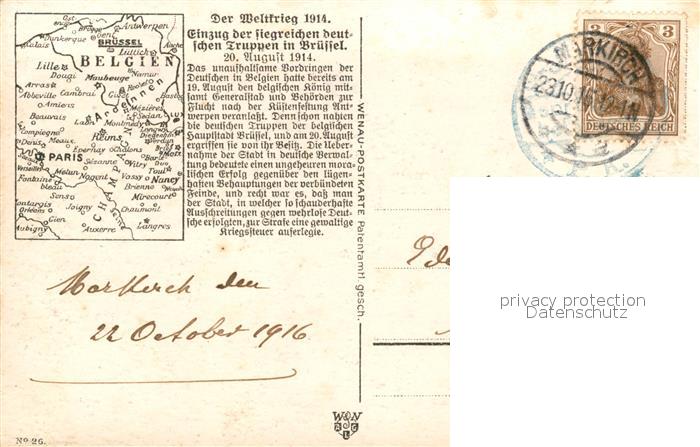 Der Weltkrieg 1914.
Einzug der siegreichen deut-
schen Truppen in Brüssel.
20. August 1914.
Das unaufhaltsame Vordringen der
Deutschen in Belgien hatte bereits am
19. August den belgischen König mit-
samt Generalstab und Behörden zur
Flucht nach der Küstenfestung Ant-
werpen veranlaßt. Denn schon nahten
die deutschen Truppen der belgischen
Hauptstadt Brüssel, und am 20. August
ergriffen sie von ihr Besitz. Die Ueber-
nahme der Stadt in deutsche Verwal-
tung bedeutete einen ungeheuren mora-
lischen Erfolg gegenüber den lügen-
haften Behauptungen der verbündeten
Feinde, und recht war es, daß man
der Stadt, in welcher so schauderhafte
Ausschreitungen gegen wehrlose Deut-
sche erfolgten, zur Strafe eine gewaltige
Kriegssteuer auferlegte.
Antwerpen
Ostende
Calais
Dunkerque
Gent
BRÜSSEL
Lüttich
BELGIEN
Lille
Namur
Douai
Maubeuge
Arras
Abbeville Cambrai
Ardennen
Amiens
Mézières
Sedan
Beauvais
Laon
Montmédy
Compiegne
Reims
Verdun
St Denis
Meaux
Epernay
Châlons
PARIS
Sézanne
Vitry
Toul
Melun
Nogent
Nancy
Fontaine
bleau
Brienne
Sens
Mirecourt
CHAMPAGNE
Joigny
Chaumont
Montargis
Orléans
Gien
Seine
Aubigny
Auxerre
Langres
WENAU-POSTKARTE Patentamtl. gesch.
3 3
DEUTSCHES REICH
MARKIRCH
23.10.
Markirch den
22 October 1916
privacy protection
Datenschutz
No 26.